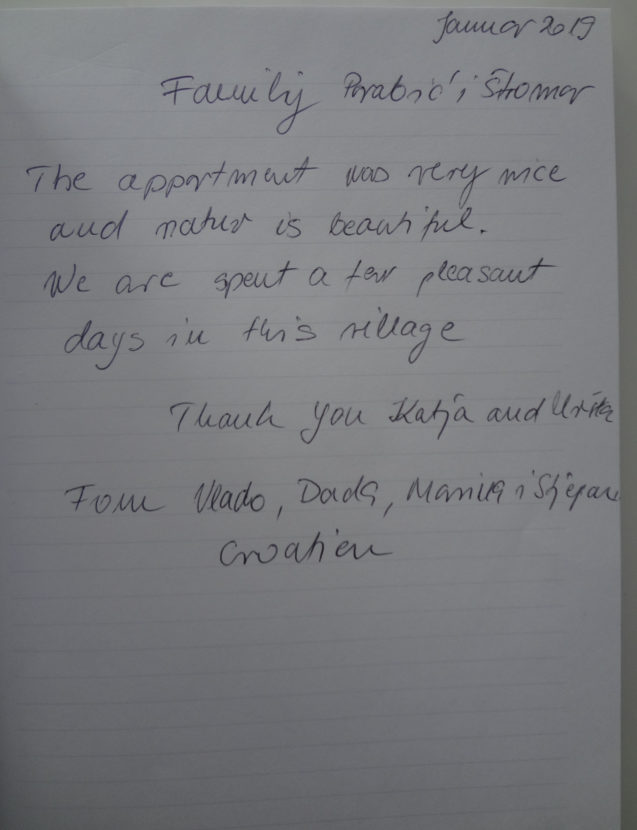 Januar 2019
Family Parabić i Štromar
The appartment was very nice
and natur is beautiful.
We are spent a few pleasant
days in this village
Thank you Katja and
Fom Vlado, Dada, Marina i Stjepan
Croatien